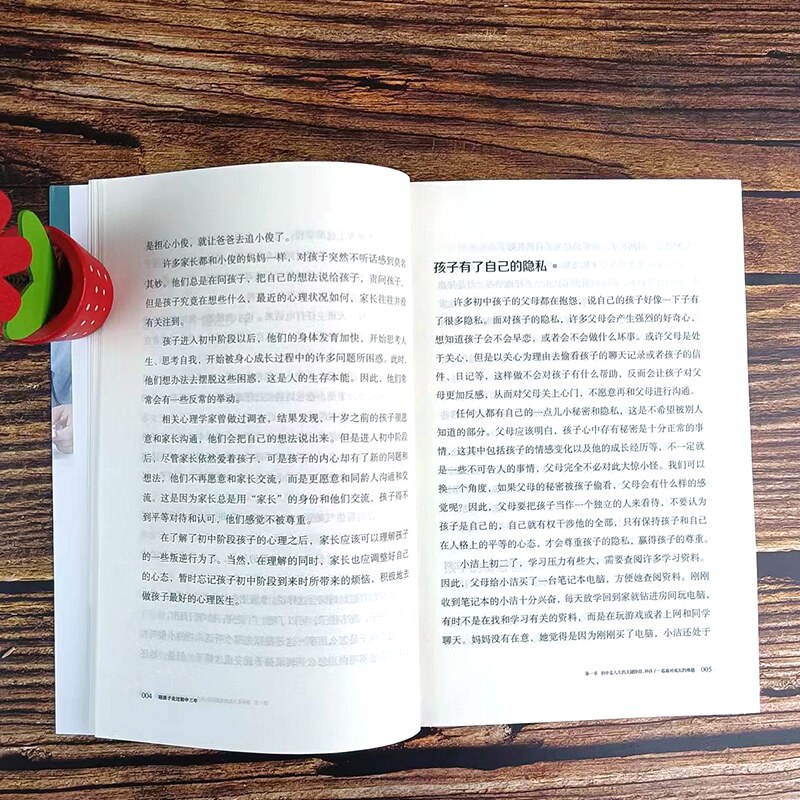 是担心小俊，就让爸爸去追小俊了。
许多家长都和小俊的妈妈一样，对孩子突然不听话感到莫名
其妙。他们总是在问孩子，把自己的想法说给孩子，责问孩子，
但是孩子究竟在想些什么，最近的心理状况如何，家长往往并没
有关注到。
孩子进入初中阶段以后，他们的身体发育加快，开始思考人
生、思考自我，开始被身心成长过程中的许多问题所困惑，此时，
他们想办法去摆脱这些困惑，这是人的生存本能。因此，他们常
常会有一些反常的举动。
相关心理学家曾做过调查，结果发现，十岁之前的孩子很愿
意和家长沟通，他们会把自己的想法说出来。但是进入初中阶段
后，尽管家长依然爱着孩子，可是孩子的内心却有了新的问题和
想法，他们不再愿意和家长交流，而是更愿意和同龄人沟通和交
流。这是因为家长总是用“家长”的身份和他们交流，孩子得不
到平等对待和认可，他们感觉不被尊重。
在了解了初中阶段孩子的心理之后，家长应该可以理解孩子
的一些叛逆行为了。当然，在理解的同时，家长也应调整好自己
的心态，暂时忘记孩子初中阶段到来时所带来的烦恼，积极地去
做孩子最好的心理医生。
004 陪孩子走过初中三年
孩子有了自己的隐私
许多初中孩子的父母都在抱怨，说自己的孩子好像一下子有
了很多隐私。面对孩子的隐私，许多父母会产生强烈的好奇心，
想知道孩子会不会早恋，或者会不会做什么坏事。或许父母是处
于关心，但是以关心为理由去偷看孩子的聊天记录或者孩子的信
件、日记等，这样做不会对孩子有什么帮助，反而会让孩子对父
母更加反感，从而对父母关上心门，不愿意再和父母进行沟通。
任何人都有自己的一点儿小秘密和隐私，这是不希望被别人
知道的部分。父母应该明白，孩子心中存有秘密是十分正常的事
情，这其中包括孩子的情感变化以及他的成长经历等，不一定就
是一些不可告人的事情，父母完全不必对此大惊小怪。我们可以
换一个角度，如果父母的秘密被孩子偷看，父母会有什么样的感
觉呢？因此，父母要把孩子当作一个独立的人来看待，不要认为
孩子是自己的，自己就有权干涉他的全部，只有保持孩子和自己
在人格上的平等的心态，才会尊重孩子的隐私，赢得孩子的尊重。
小洁上初二了，学习压力有些大，需要查阅许多学习资料。
因此，父母给小洁买了一台笔记本电脑，方便她查阅资料。刚刚
收到笔记本的小洁十分兴奋，每天放学回到家就钻进房间玩电脑，
有时不是在找和学习有关的资料，而是在玩游戏或者上网和同学
聊天。妈妈没有在意，她觉得是因为刚刚买了电脑，小洁还处于
第一章 初中是人生的关键阶段，和孩子一起面对成长的难题 005